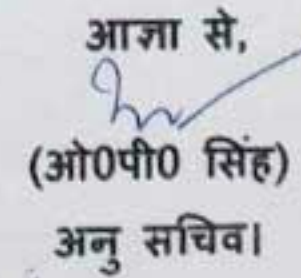 आज्ञा से,
(ओ0पी0 सिंह)
अनु सचिव।